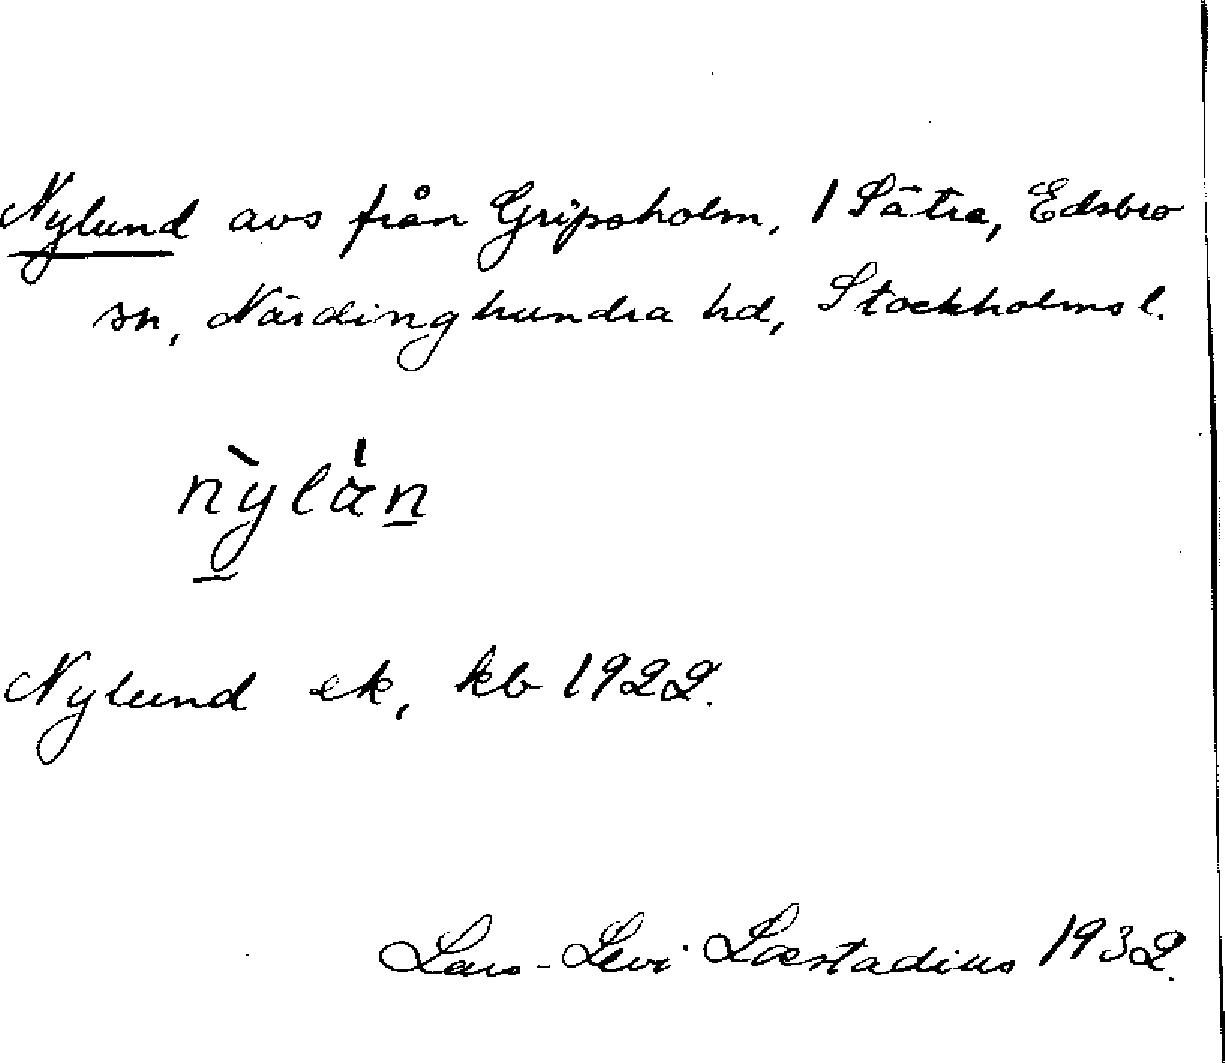 Nylund avs från Gripsholm, 1 Sätra, Edsbro
sn, Närdinghundra hd, Stockholms l.
nỳlán
Nylund ek, kb 1922.
Lars-Levi Læstadius 1932.